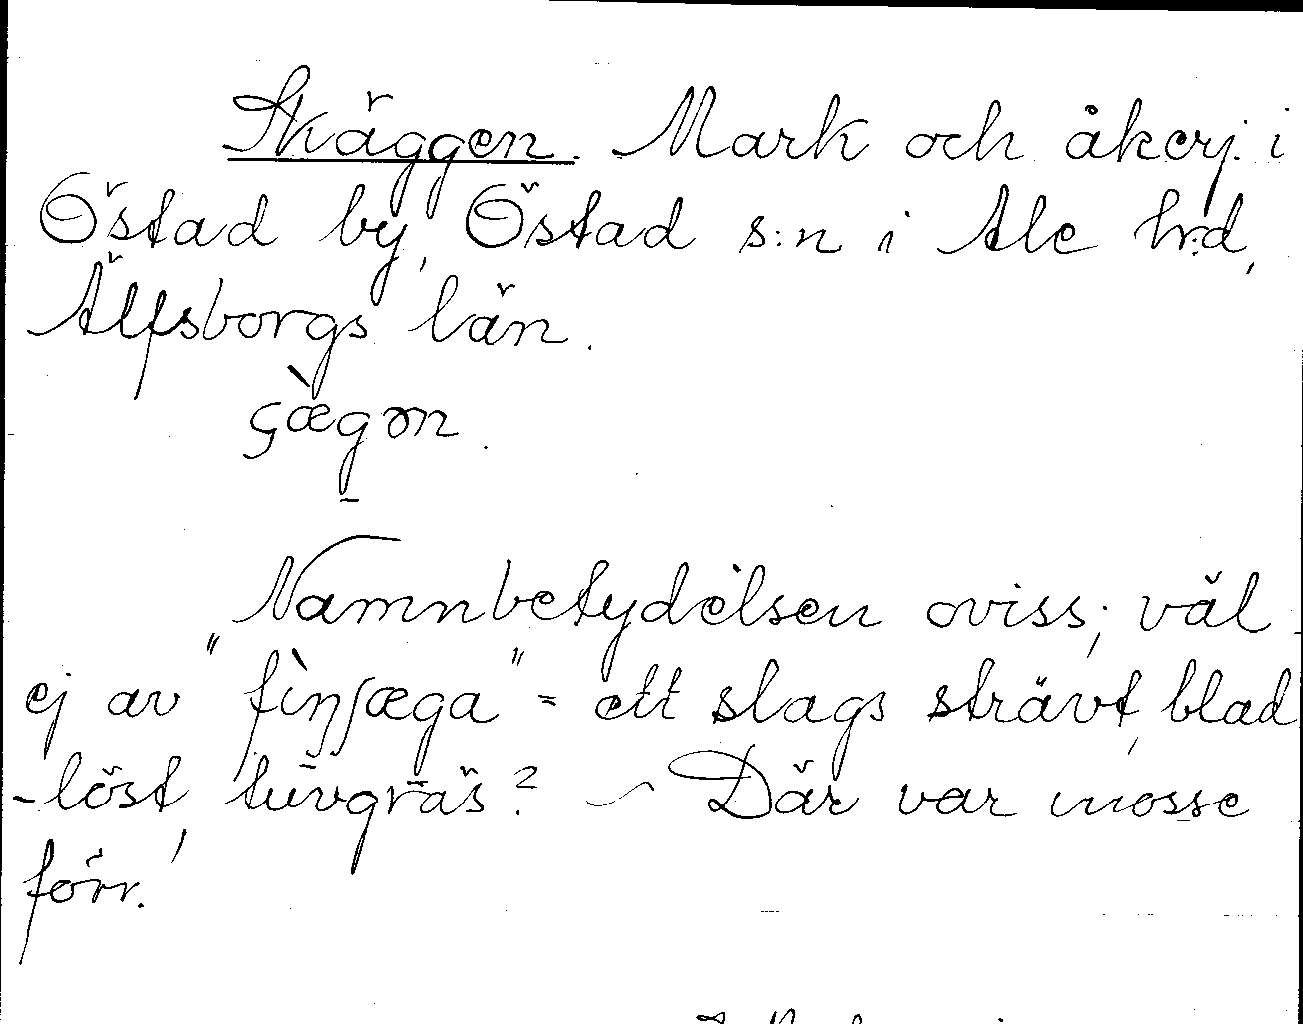 Skäggen. Mark och åkerj. i
Östad by, Östad s:n i Ale hrd,
Älfsborgs län.
çæ̀gən.
Namnbetydelsen oviss; väl
ej av "fìnʃæga" = ett slags strävt, blad
-löst, tuvgräs? ~ Där var mosse
förr.